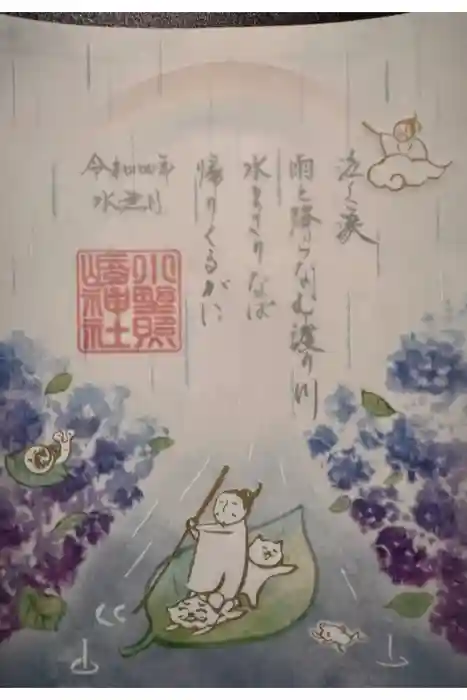 泣く涙
雨と降らなむ渡り川
水まさりなば
帰りくるがに
令和四年
水無月
小野照
崎神社